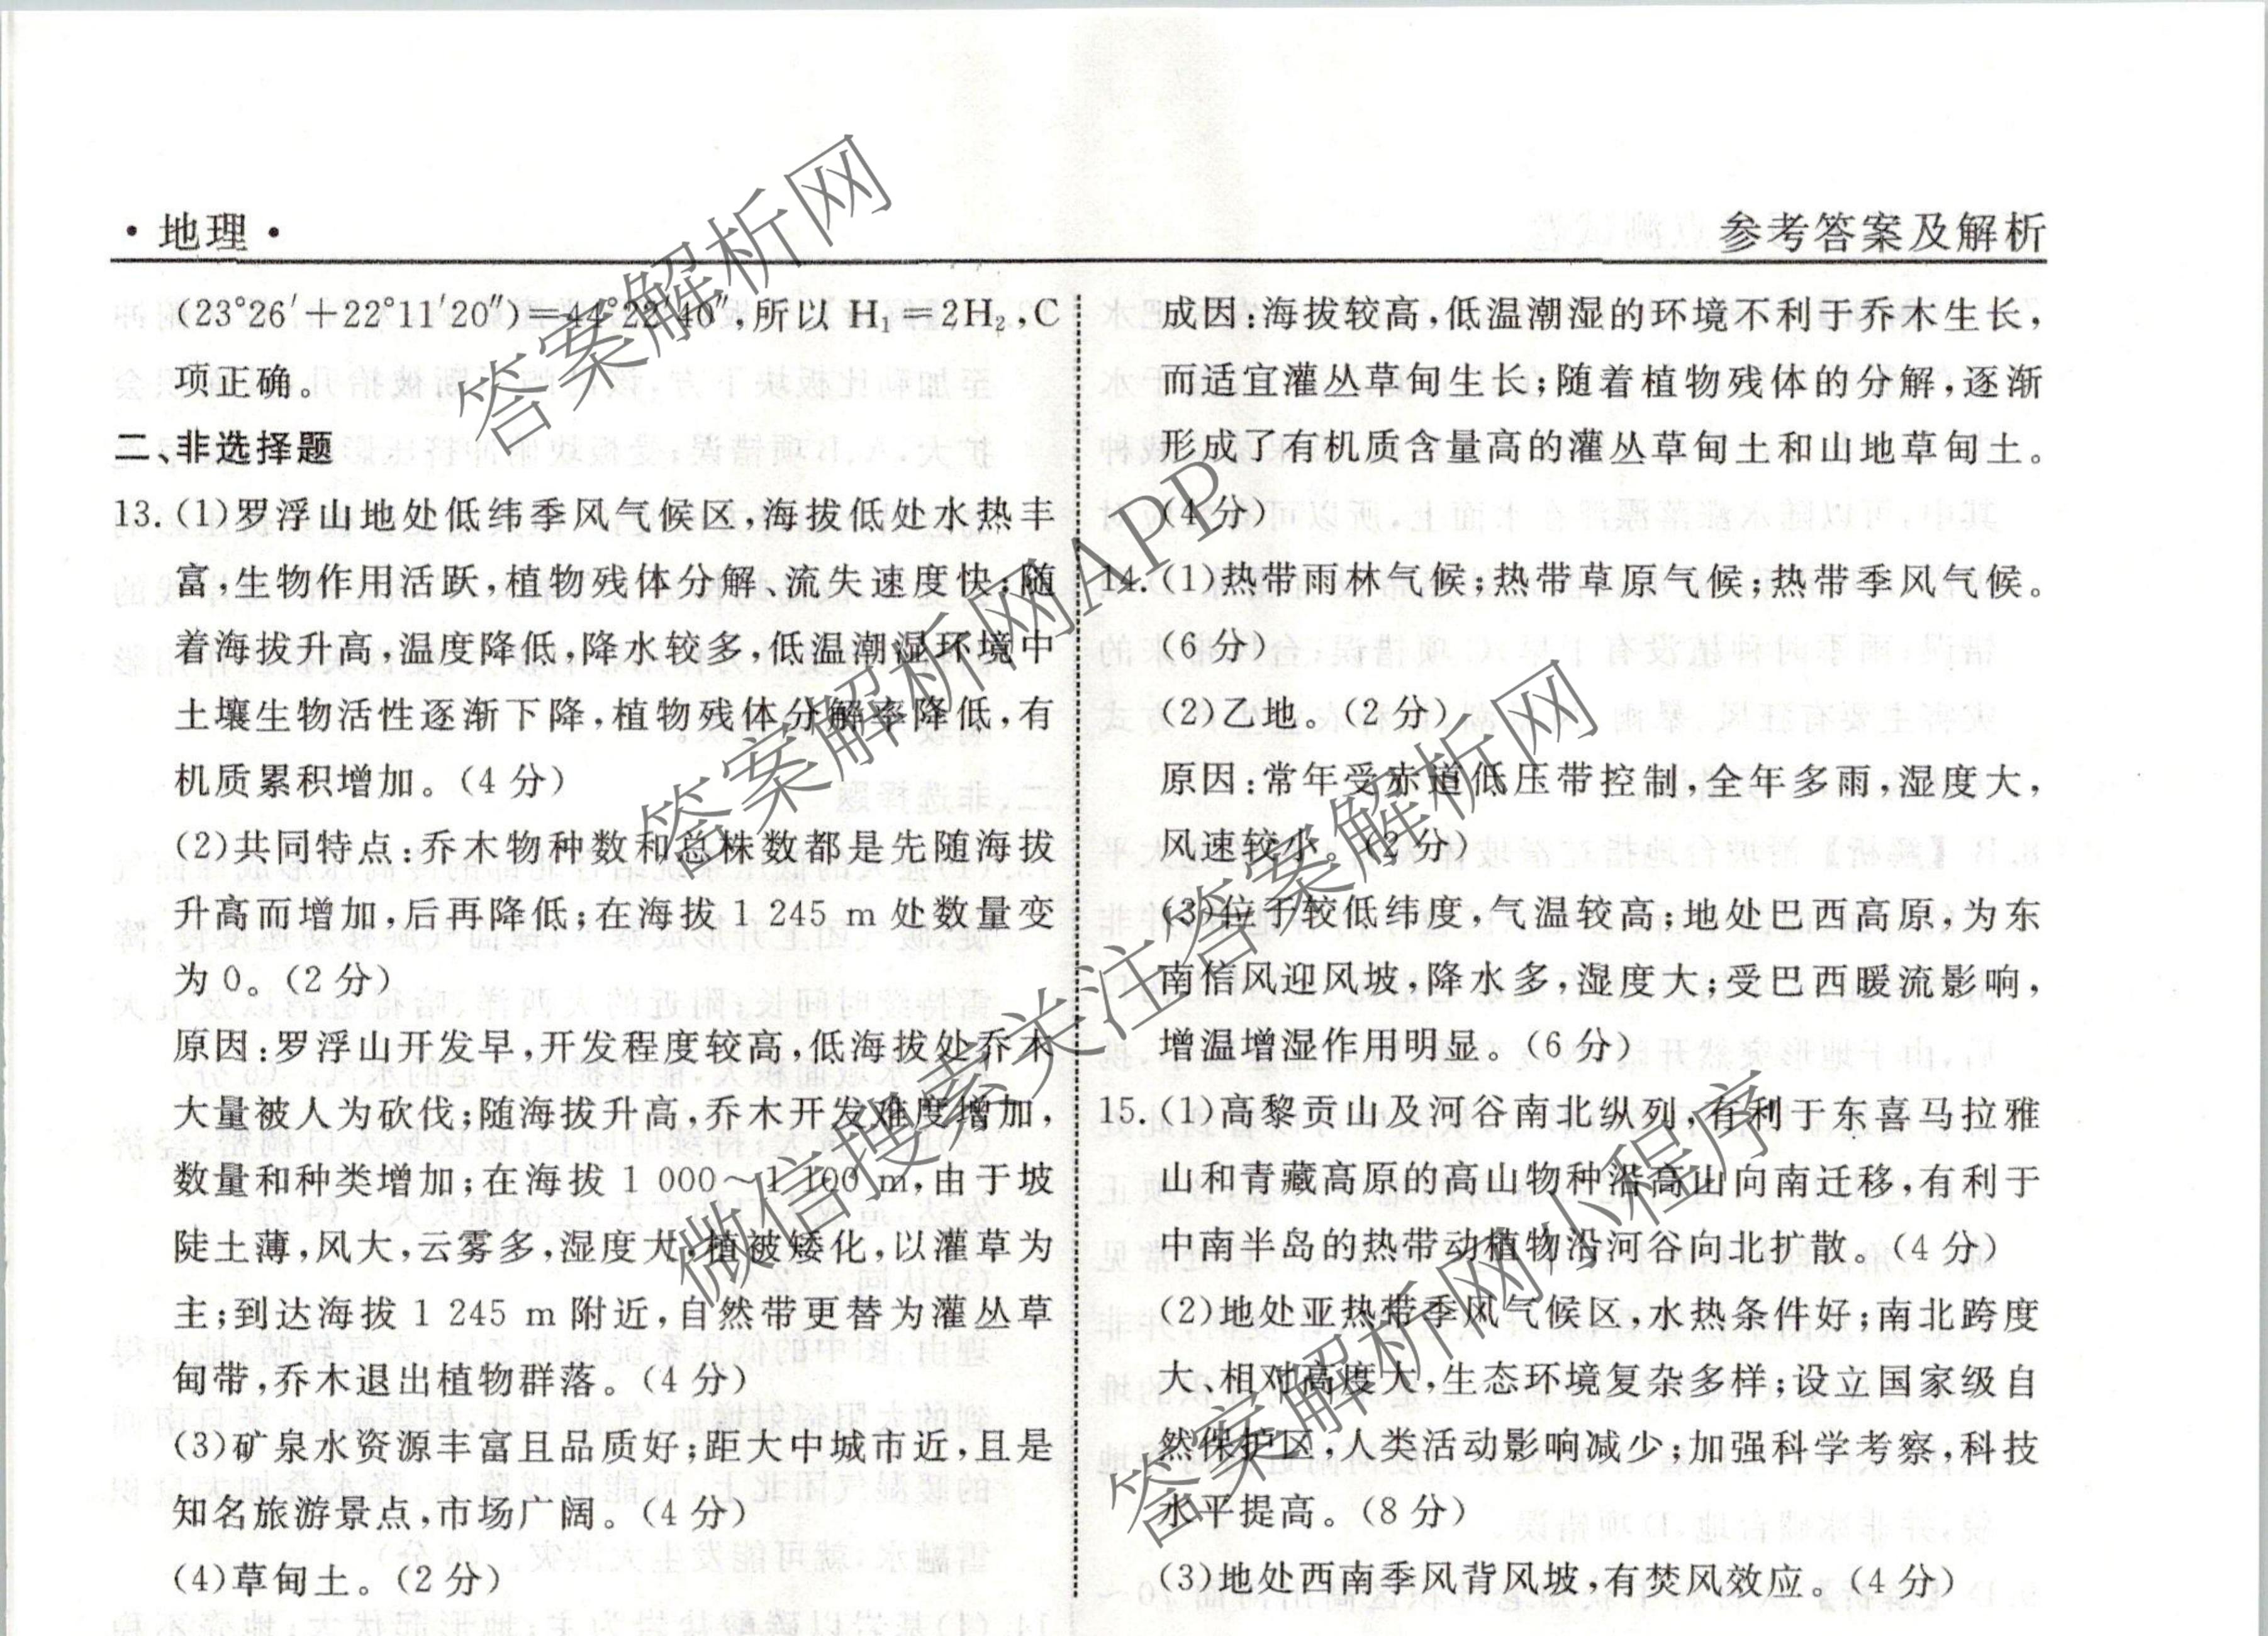 ·地理·
参考答案及解析
(23°26′+22°11′20″)=44°22′40″,所以 H₁=2H₂,C
项正确。
二、非选择题
13.(1)罗浮山地处低纬季风气候区,海拔低处水热丰
富,生物作用活跃,植物残体分解、流失速度快;随
着海拔升高,温度降低,降水较多,低温潮湿环境中
土壤生物活性逐渐下降,植物残体分解率降低,有
机质累积增加。(4分)
(2)共同特点:乔木物种数和总株数都是先随海拔
升高而增加,后再降低;在海拔1 245 m处数量变
为0。(2分)
原因:罗浮山开发早,开发程度较高,低海拔处乔木
大量被人为砍伐;随海拔升高,乔木开发难度增加,
数量和种类增加;在海拔1 000~1 100 m,由于坡
陡土薄,风大,云雾多,湿度大,植被矮化,以灌草为
主;到达海拔1 245 m附近,自然带更替为灌丛草
甸带,乔木退出植物群落。(4分)
(3)矿泉水资源丰富且品质好;距大中城市近,且是
知名旅游景点,市场广阔。(4分)
(4)草甸土。(2分)
成因:海拔较高,低温潮湿的环境不利于乔木生长,
而适宜灌丛草甸生长;随着植物残体的分解,逐渐
形成了有机质含量高的灌丛草甸土和山地草甸土。
(4分)
14.(1)热带雨林气候;热带草原气候;热带季风气候。
(6分)
(2)乙地。(2分)
原因:常年受赤道低压带控制,全年多雨,湿度大,
风速较小。(2分)
(3)位于较低纬度,气温较高;地处巴西高原,为东
南信风迎风坡,降水多,湿度大;受巴西暖流影响,
增温增湿作用明显。(6分)
15.(1)高黎贡山及河谷南北纵列,有利于东喜马拉雅
山和青藏高原的高山物种沿高山向南迁移,有利于
中南半岛的热带动植物沿河谷向北扩散。(4分)
(2)地处亚热带季风气候区,水热条件好;南北跨度
大、相对高度大,生态环境复杂多样;设立国家级自
然保护区,人类活动影响减少;加强科学考察,科技
水平提高。(8分)
(3)地处西南季风背风坡,有焚风效应。(4分)
答案解析网
答案解析网APP
微信搜索关注答案解析网
答案解析网小程序